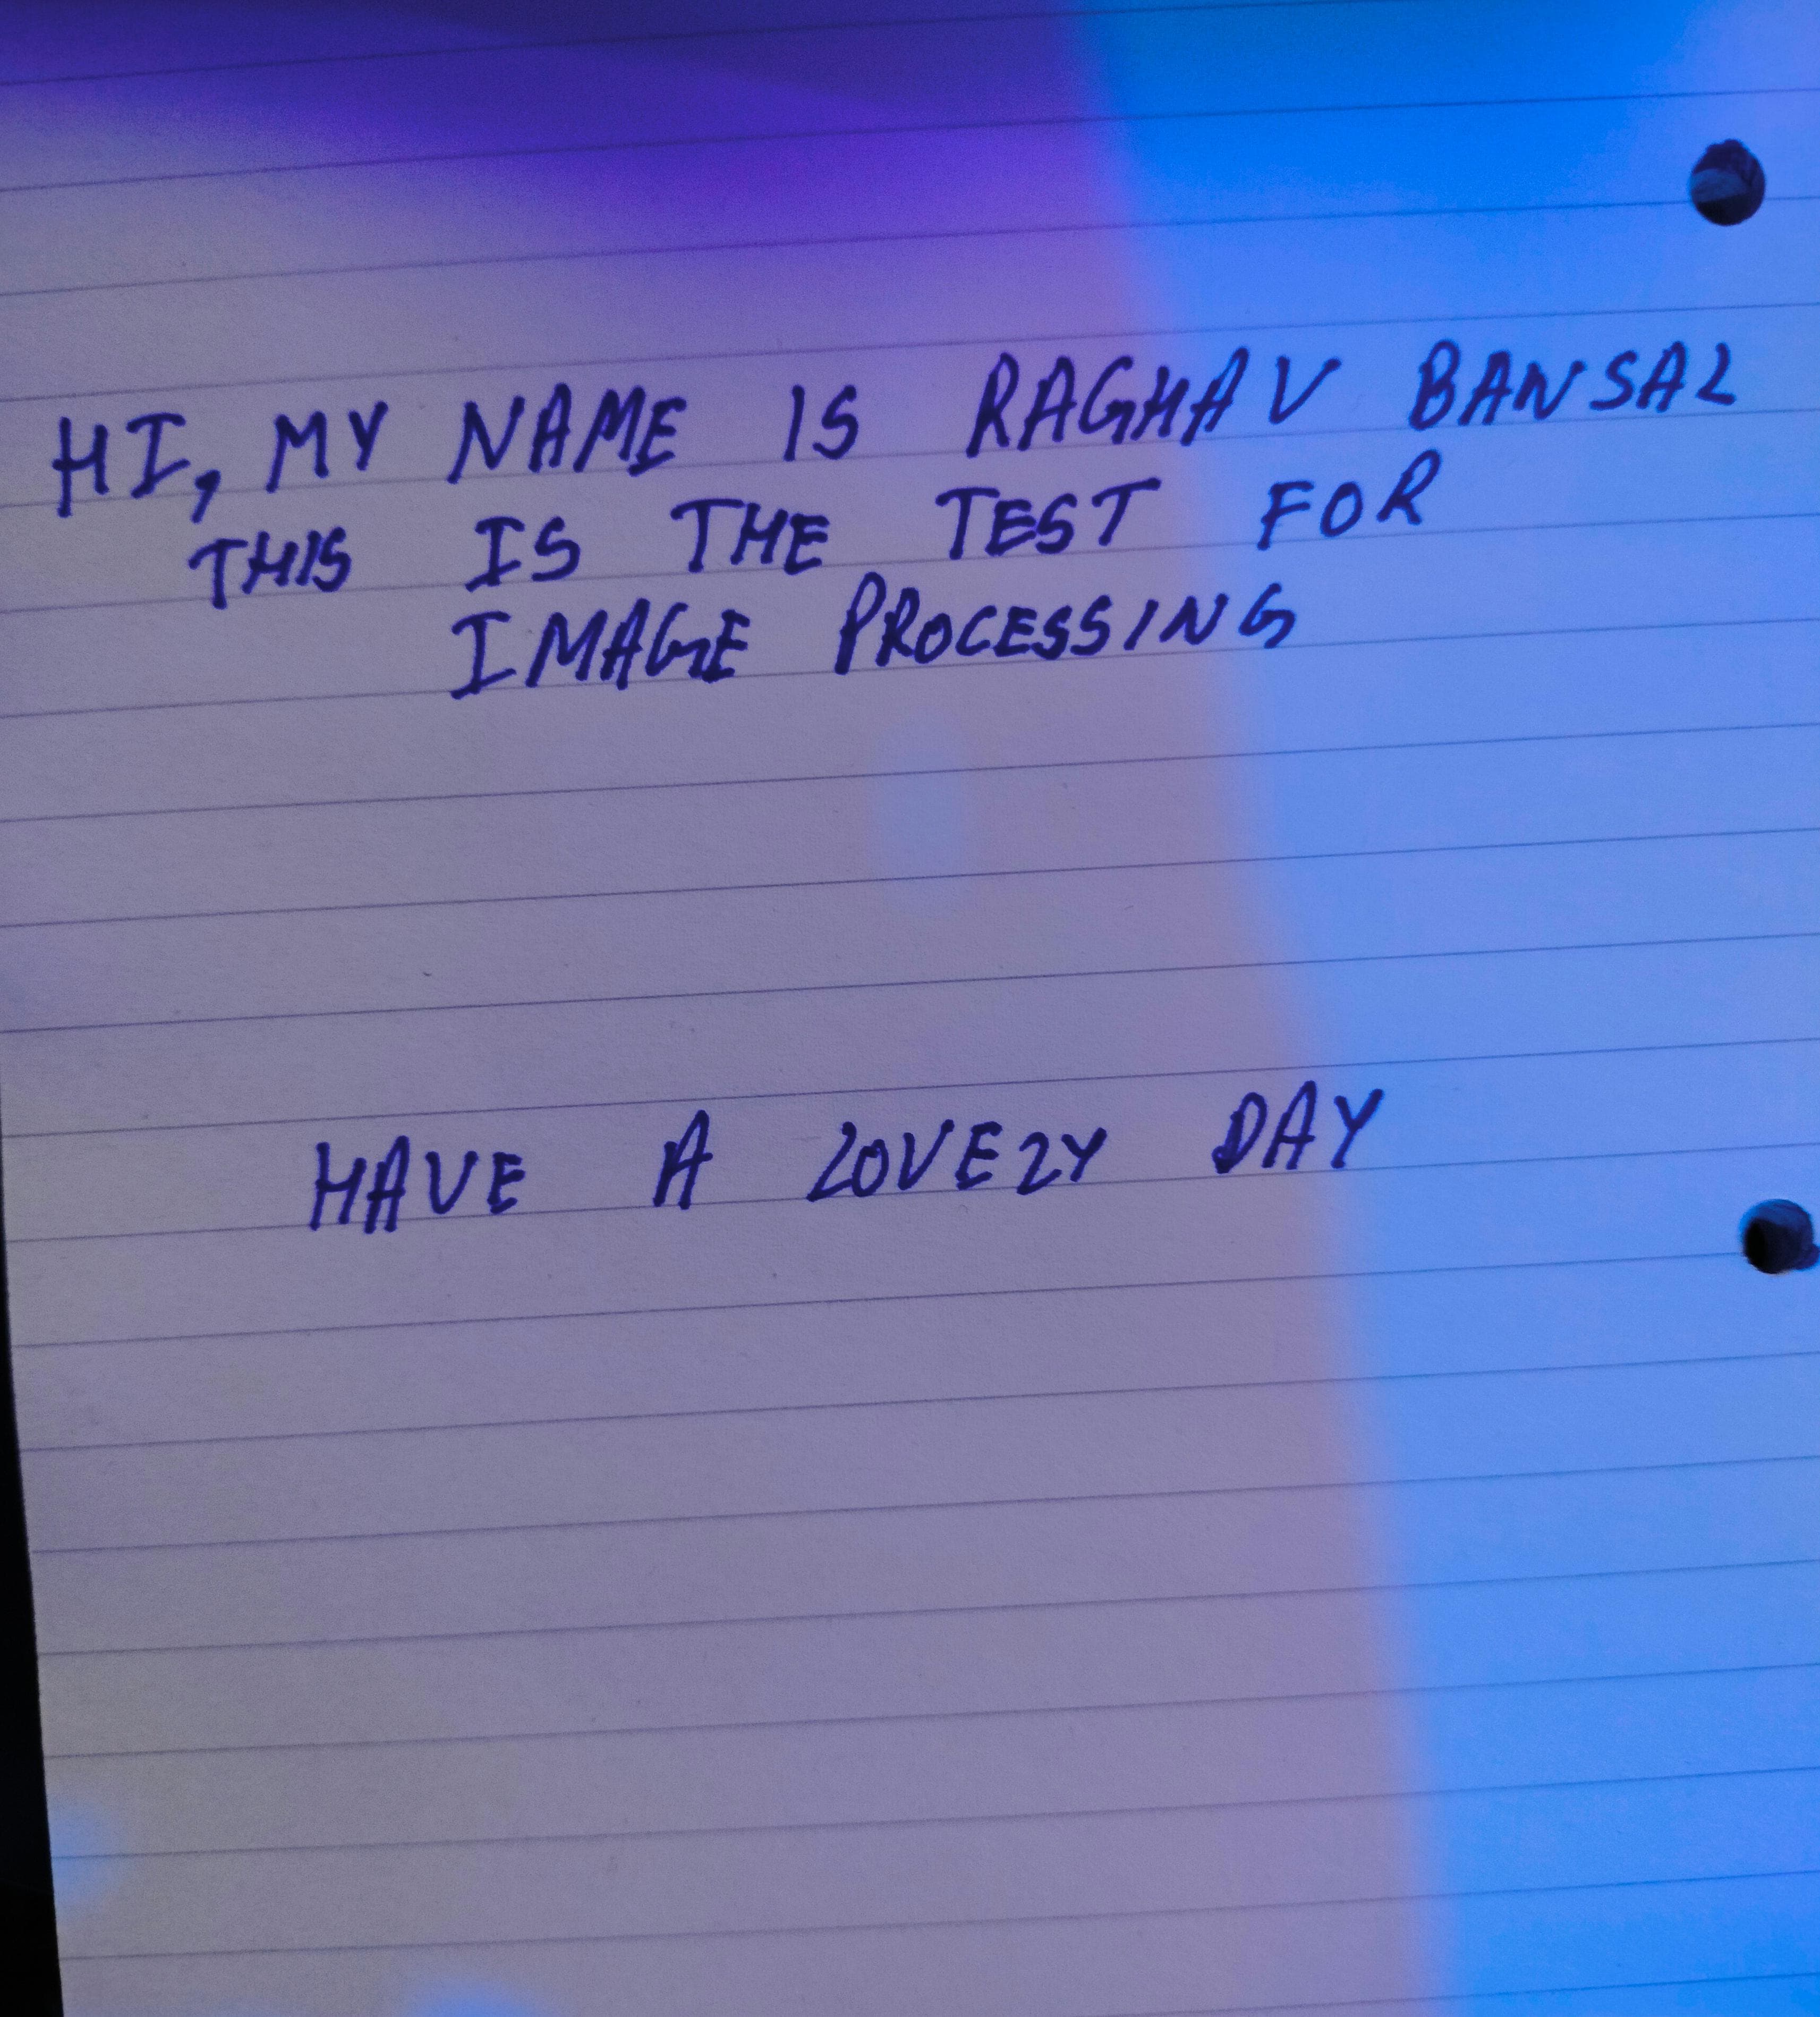 HI, MY NAME IS RAGHAV BANSAL
THIS IS THE TEST FOR
IMAGE PROCESSING
HAVE A LOVELY DAY